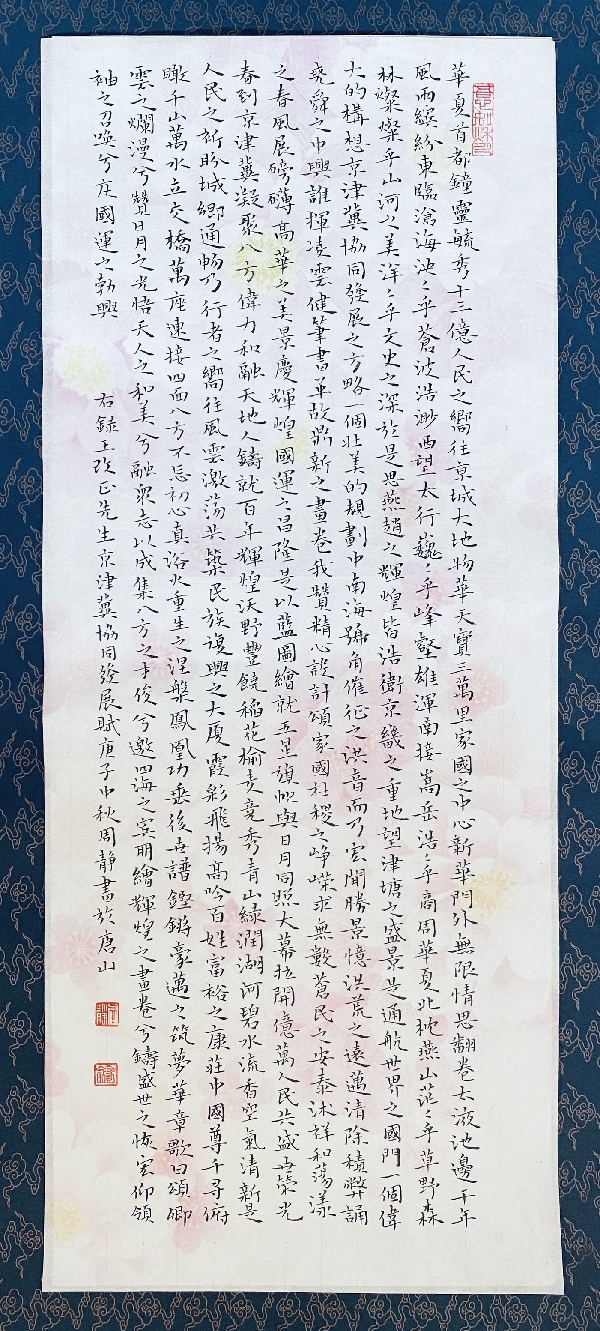 華夏首都鐘靈毓秀十三億人民之嚮往京城大地物華天寶三萬里家國之中心新華門外無限情思翻卷太液池邊千年
風雨繽紛東臨滄海泱々乎蒼波浩渺西望太行巍々乎峰壑雄渾南接嵩岳浩々乎商周華夏北枕燕山茫々乎草野森
林燦燦乎山河之美洋々乎文史之深於是思燕趙之輝煌皆浩衛京畿之重地望津塘之盛景是通航世界之國門一個偉
大的構想京津冀協同發展之方略一個壯美的規劃中南海號角催征之洪音而乃宏開勝景憶洪荒之遠邁清除積弊誦
堯舜之中興誰揮凌雲健筆書革故鼎新之畫卷我贊精心設計頌家國社稷之崢嶸求無數蒼民之安泰沐祥和蕩漾
之春風展磅礴高華之美景慶輝煌國運之昌隆是以藍圖繪就五星旗幟與日月同照大幕拉開億萬人民共盛世榮光
春到京津冀凝聚八方偉力和融天地人鑄就百年輝煌沃野豐饒稻花榆麥竞秀青山綠潤湖河碧水流香空氣清新是
人民之祈盼城鄉通暢乃行者之嚮往風雲激蕩共築民族復興之大廈霞彩飛揚高吟百姓富裕之康莊中國尊千尋俯
瞰千山萬水立交橋萬座連接四面八方不忘初心真浴火重生之涅槃鳳凰功垂後世譜鏗鏘豪邁之筑夢華章歌曰頌卿
雲之爛漫兮贊日月之光悟天人之和美兮融眾志以成集八方之才俊兮邀四海之賓朋繪輝煌之畫卷兮鑄盛世之恢宏仰領
袖之召喚兮庄國運之勃興
右錄王改正先生京津冀協同發展賦庚子中秋周靜書於唐山